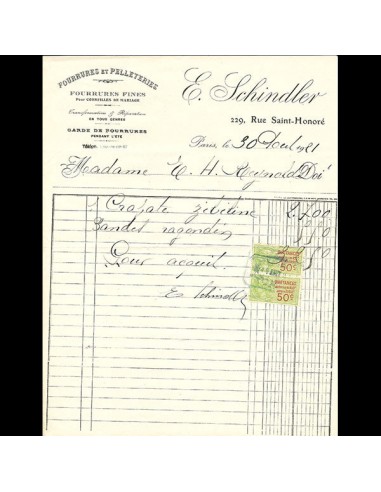 FOURRURES ET PELLETERIES
FOURRURES FINES
Pour CORBEILLES DE MARIAGE
Transformations & Réparations
EN TOUS GENRES
GARDE DE FOURRURES
PENDANT L'ÉTÉ
Téléph.
E. Schindler
229, Rue Saint-Honoré
Paris, le 30 1921
Madame H. Reynold Doit
1 Cravate zibeline 2.700
Bandes ragondin
Pour acquit
E. Schindler
50c
50c